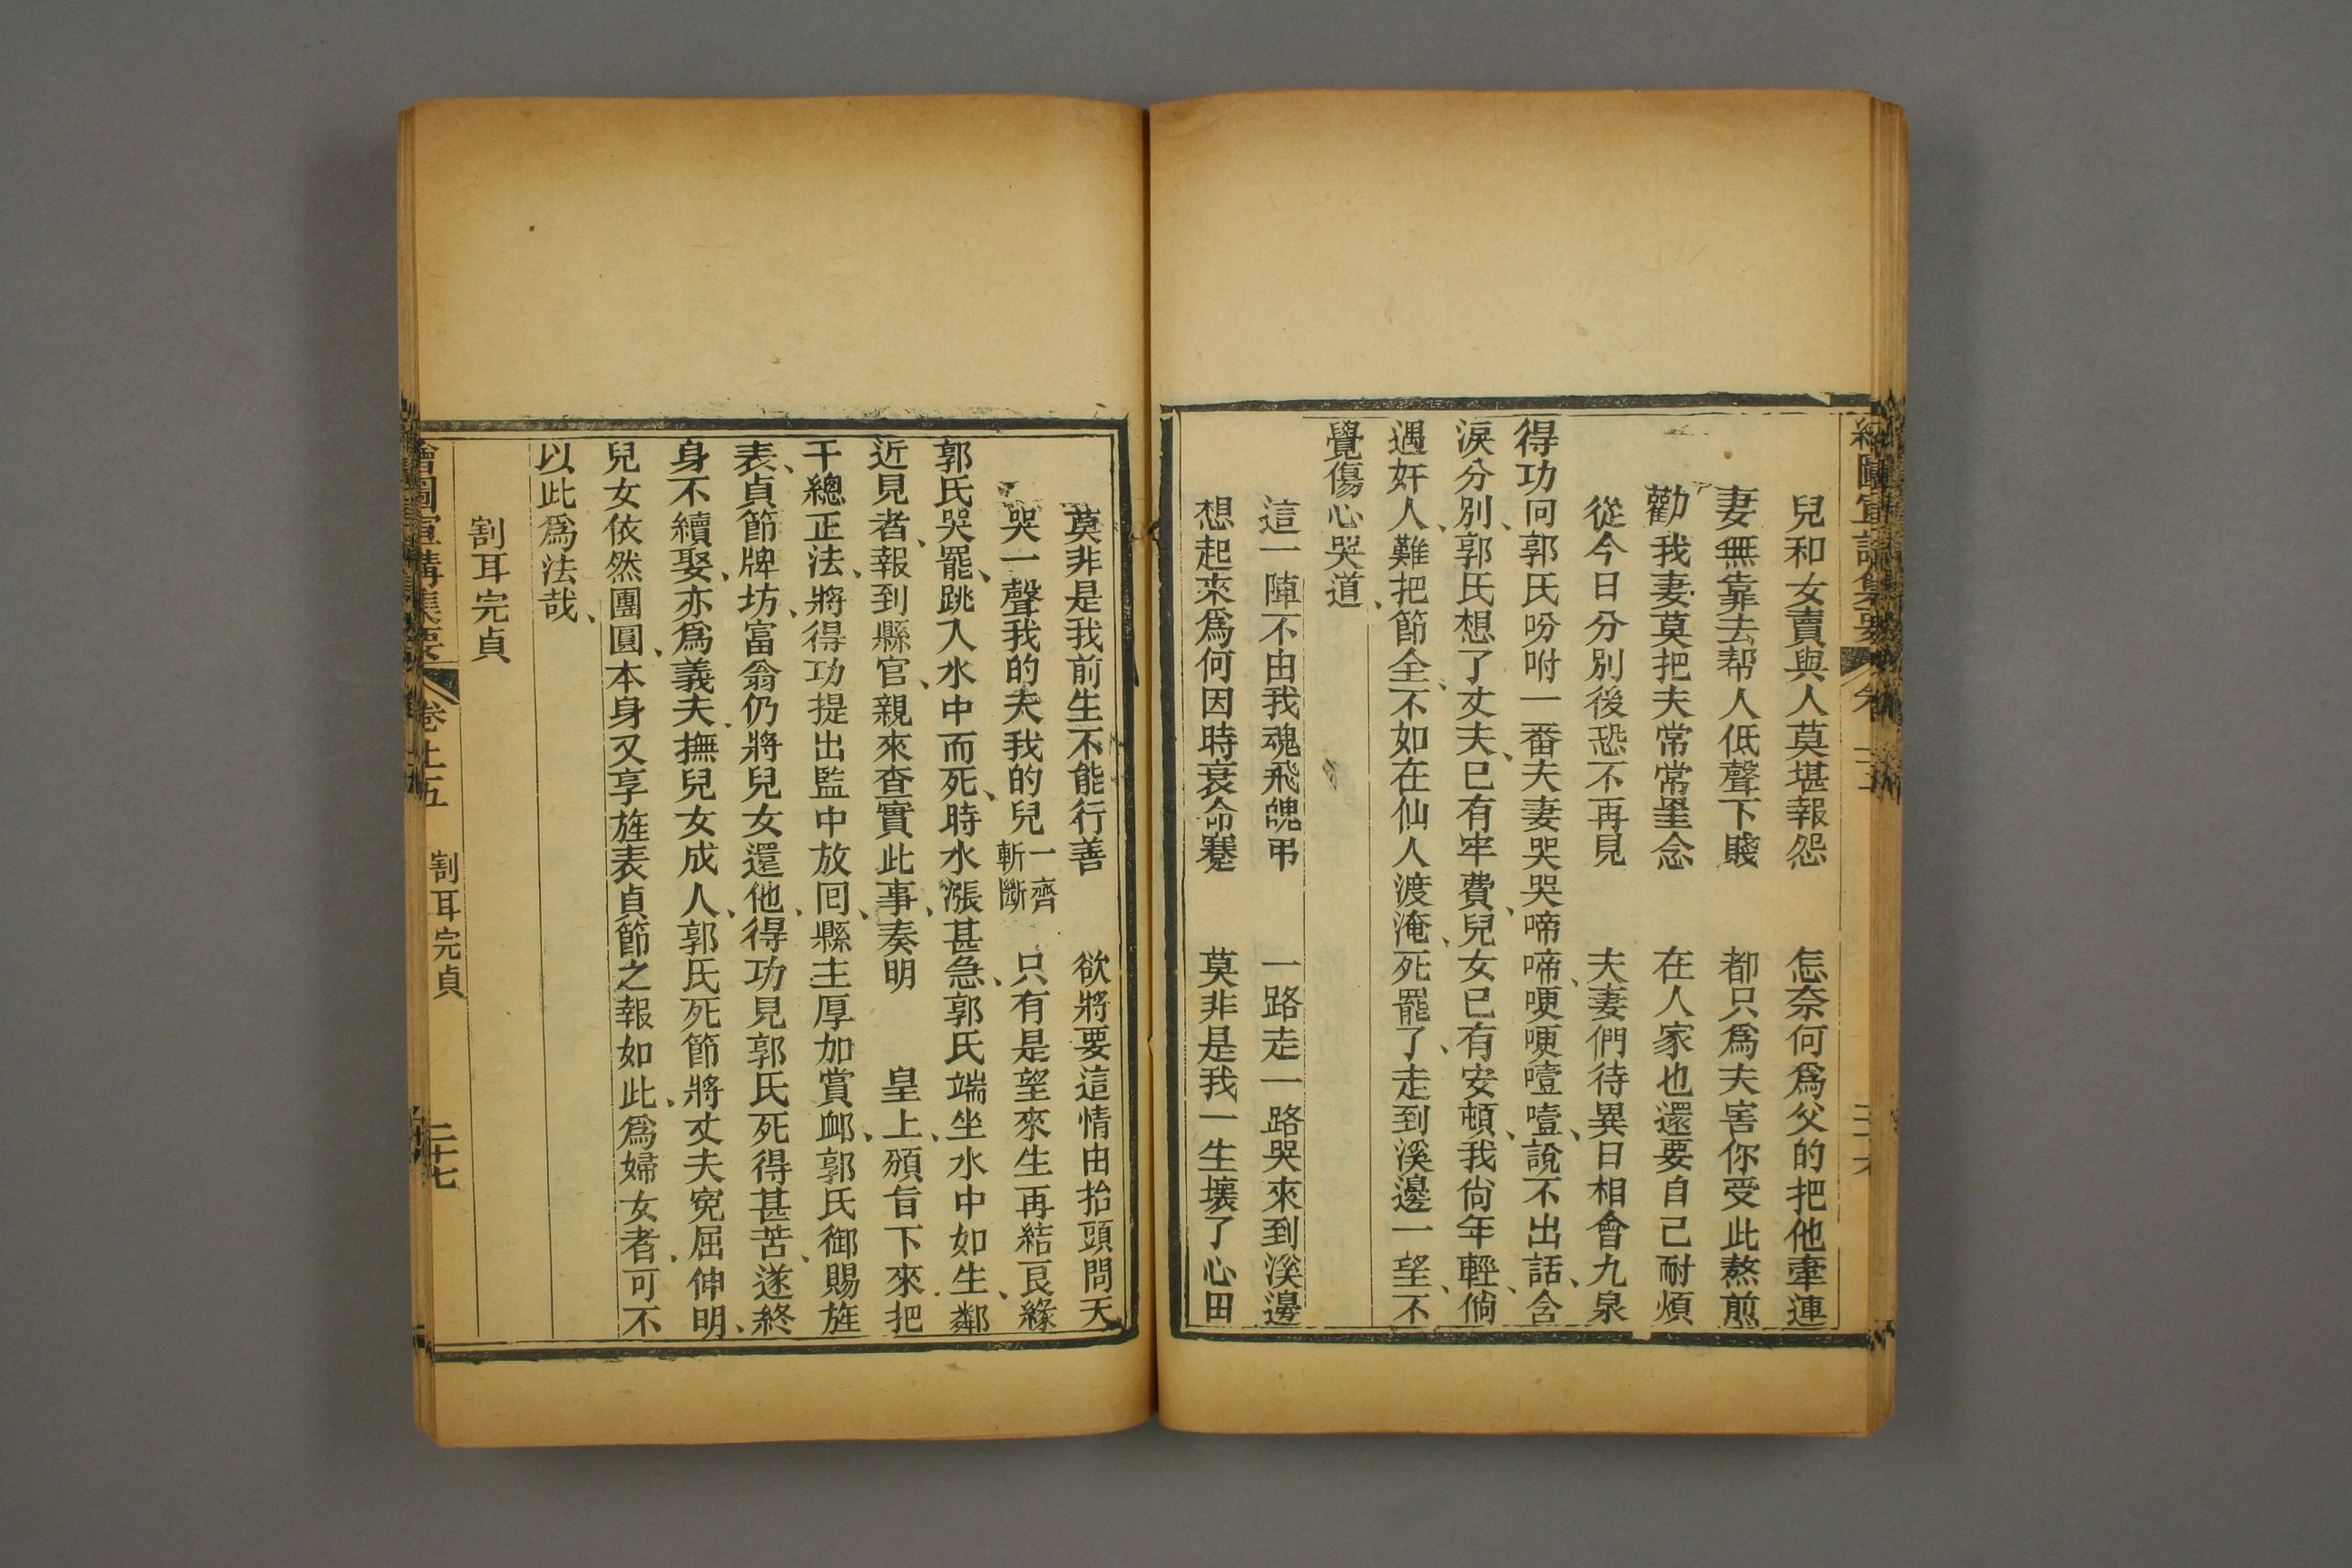 兒和女賣與人莫堪報怨　怎奈何爲父的把他牽連
妻無靠去帮人低聲下賤　都只爲夫害你受此熬煎
勸我妻莫把夫常常里念　在人家也還要自己耐煩
從今日分別後恐不再見　夫妻們待異日相會九泉
得功向郭氏吩咐一番夫妻哭哭啼啼、哽哽噎噎、說不出話、含
淚分別、郭氏想了丈夫、巳有牢費、兒女巳有安頓、我尙年輕、倘
遇奸人、難把節全、不如在仙人渡淹、死罷了、走到溪邊一望、不
覺傷心哭道、
這一陣不由我魂飛魄弔　一路走一路哭來到溪邊
想起來爲何因時衰命蹇　莫非是我一生壞了心田
莫非是我前生不能行善　欲將要這情由抬頭問天
哭一聲我的夫我的兒一齊斬斷　只有是望來生再結良緣
郭氏哭罷、跳入水中而死、時水漲甚急、郭氏端坐水中如生、鄰
近見者、報到縣官、親來查實此事、奏明　皇上、頒旨下來、把
干總正法、將得功提出監中放囘、縣主厚加賞䘏、郭氏御賜旌
表、貞節牌坊、富翁仍將兒女還他、得功見郭氏死得甚苦、遂終
身不續娶、亦爲義夫、撫兒女成人、郭氏死節將丈夫寃屈伸明、
兒女依然團圓、本身又享旌表貞節之報如此、爲婦女者、可不
以此爲法哉、
割耳完貞
繪圖宣講集要　卷十五　割耳完貞　二十七